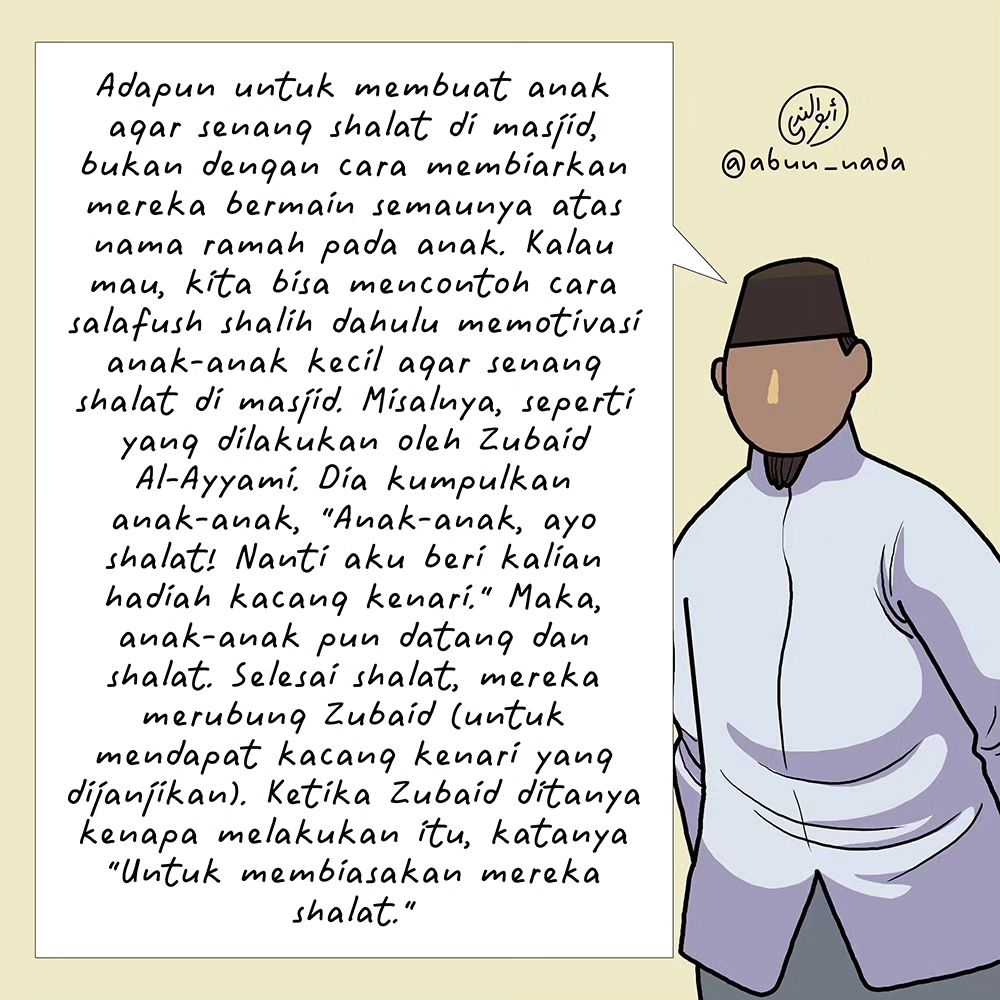 Adapun untuk membuat anak
agar senang shalat di masjid,
bukan dengan cara membiarkan
mereka bermain semaunya atas
nama ramah pada anak. Kalau
mau, kita bisa mencontoh cara
salafush shalih dahulu memotivasi
anak-anak kecil agar senang
shalat di masjid. Misalnya, seperti
yang dilakukan oleh Zubaid
Al-Ayyami. Dia kumpulkan
anak-anak, "Anak-anak, ayo
shalat! Nanti aku beri kalian
hadiah kacang kenari." Maka,
anak-anak pun datang dan
shalat. Selesai shalat, mereka
merubung Zubaid (untuk
mendapat kacang kenari yang
dijanjikan). Ketika Zubaid ditanya
kenapa melakukan itu, katanya
"Untuk membiasakan mereka
shalat."
أبو الندى
@abun_nada